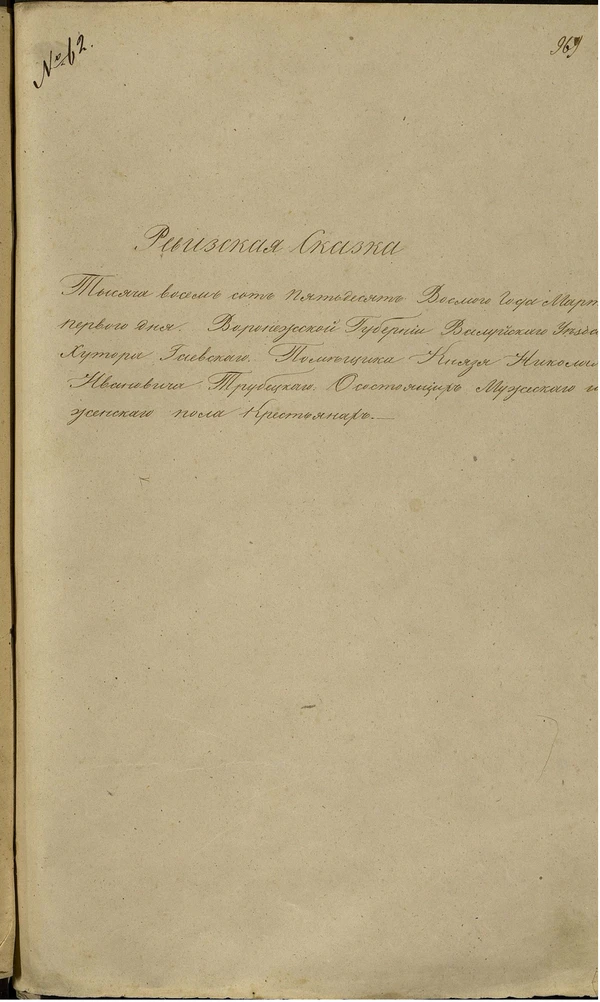 № 62.
969
Ревизская Сказка
Тысяча восемь сотъ пятьдесятъ Восмого Года Март
первого дня. Воронежской Губерніи Валуйского Уѣзда
Хутора Гаевскаго. Помѣщика Князя Никола
Ивановича Трубецкаго. О состоящихъ Мужескаго и
женскаго пола Крестьянахъ.—